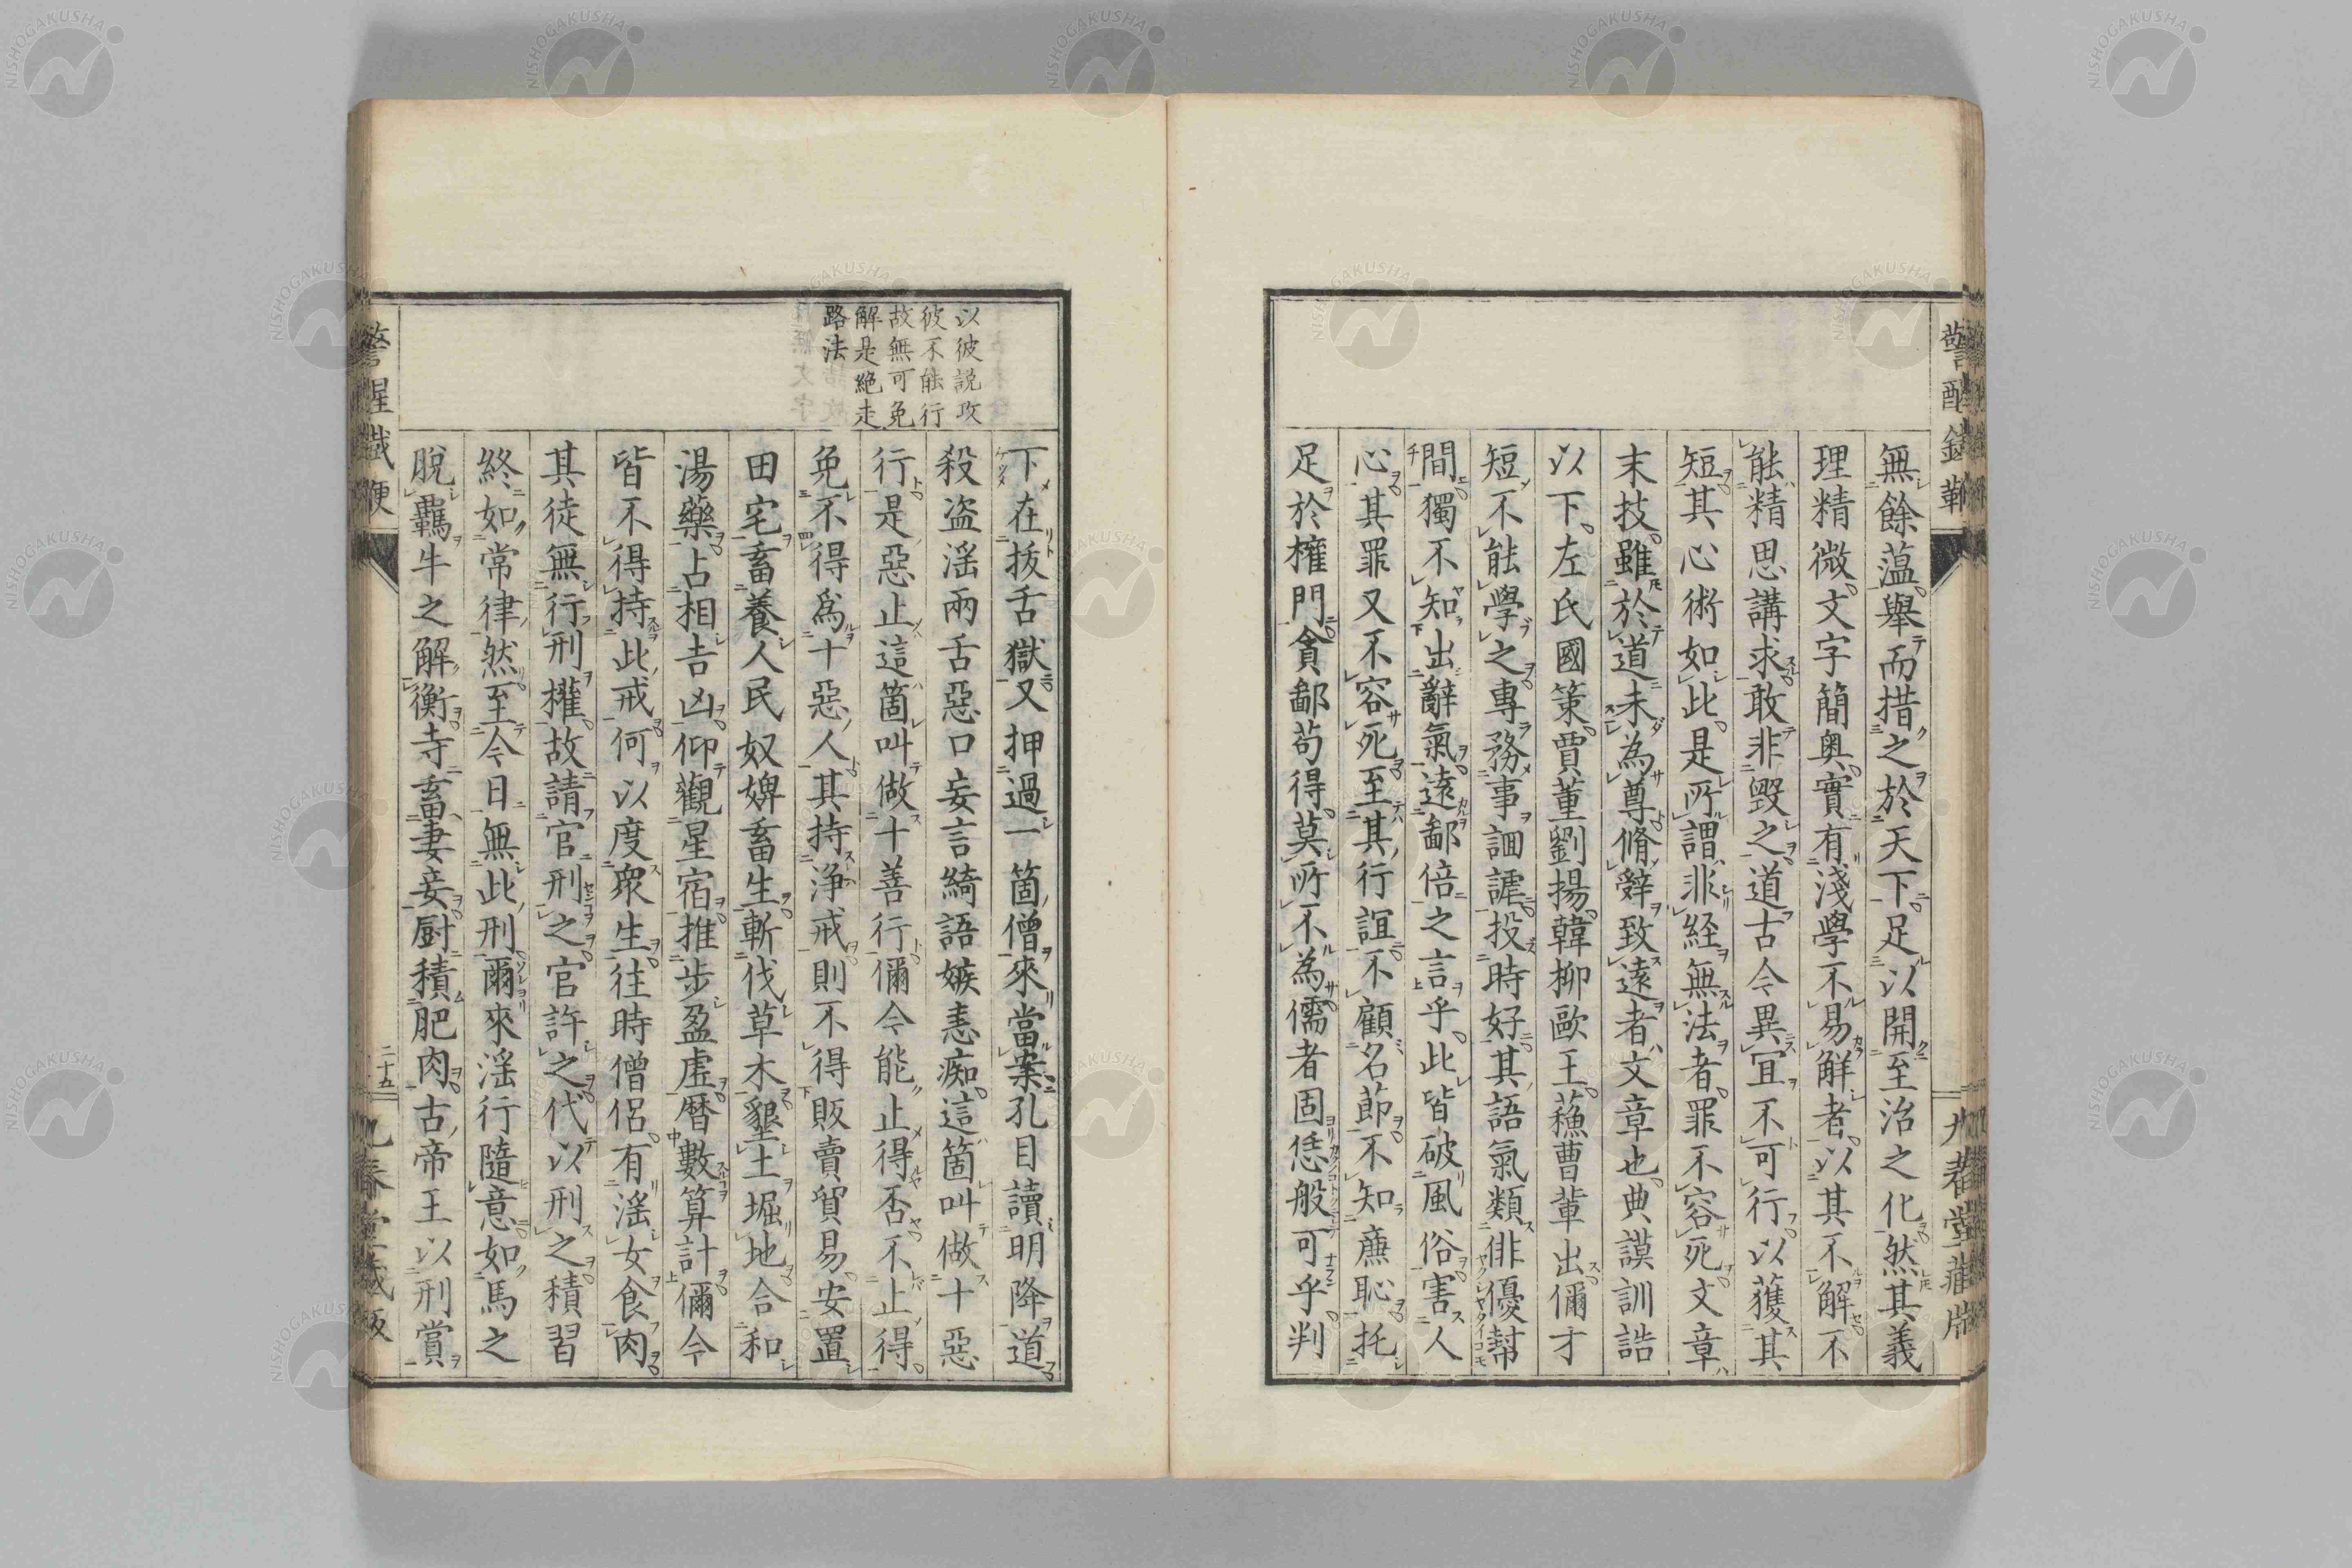 無餘薀舉而措之於天下足以開至治之化然其義
理精微文字簡奧實有淺學不易解者以其不解不
能精思講求敢非毀之道古今異宜不可行以獲其
短其心術如此是所謂非経無法者罪不容死文章
末技雖於道未為尊脩辤致遠者文章也典謨訓誥
以下左氏國策賈董劉揚韓柳歐王蘓曹輩出儞才
短不能學之專務事詼謔投時好其語氣類俳優幇
間獨不知出辭氣遠鄙倍之言乎此皆破風俗害人
心其罪又不容死至其行誼不顧名節不知廉恥托
足於権門貪鄙苟得莫所不為儒者固恁般可乎判
警醒鐵鞭
九春堂藏版
以彼説攻
彼不能行
故無可免
解是絶走
路法
下在拔舌獄又押過一箇僧來當案孔目讀明降道
殺盗滛兩舌惡口妄言綺語嫉恚痴這箇叫做十惡
行是惡止這箇叫做十善行儞今能止得否不止得
免不得為十惡人其持浄戒則不得販賣貿易安置
田宅畜養人民奴婢畜生斬伐草木墾土堀地合和
湯藥占相吉凶仰觀星宿推步盈虛暦數算計儞今
皆不得持此戒何以度衆生往時僧侶有滛女食肉
其徒無行刑權故請官刑之官許之代以刑之積習
終如常律然至今日無此刑爾來滛行隨意如馬之
脫羈牛之解衡寺畜妻妾厨積肥肉古帝王以刑賞
警醒鐵鞭
二十五
九春堂藏版